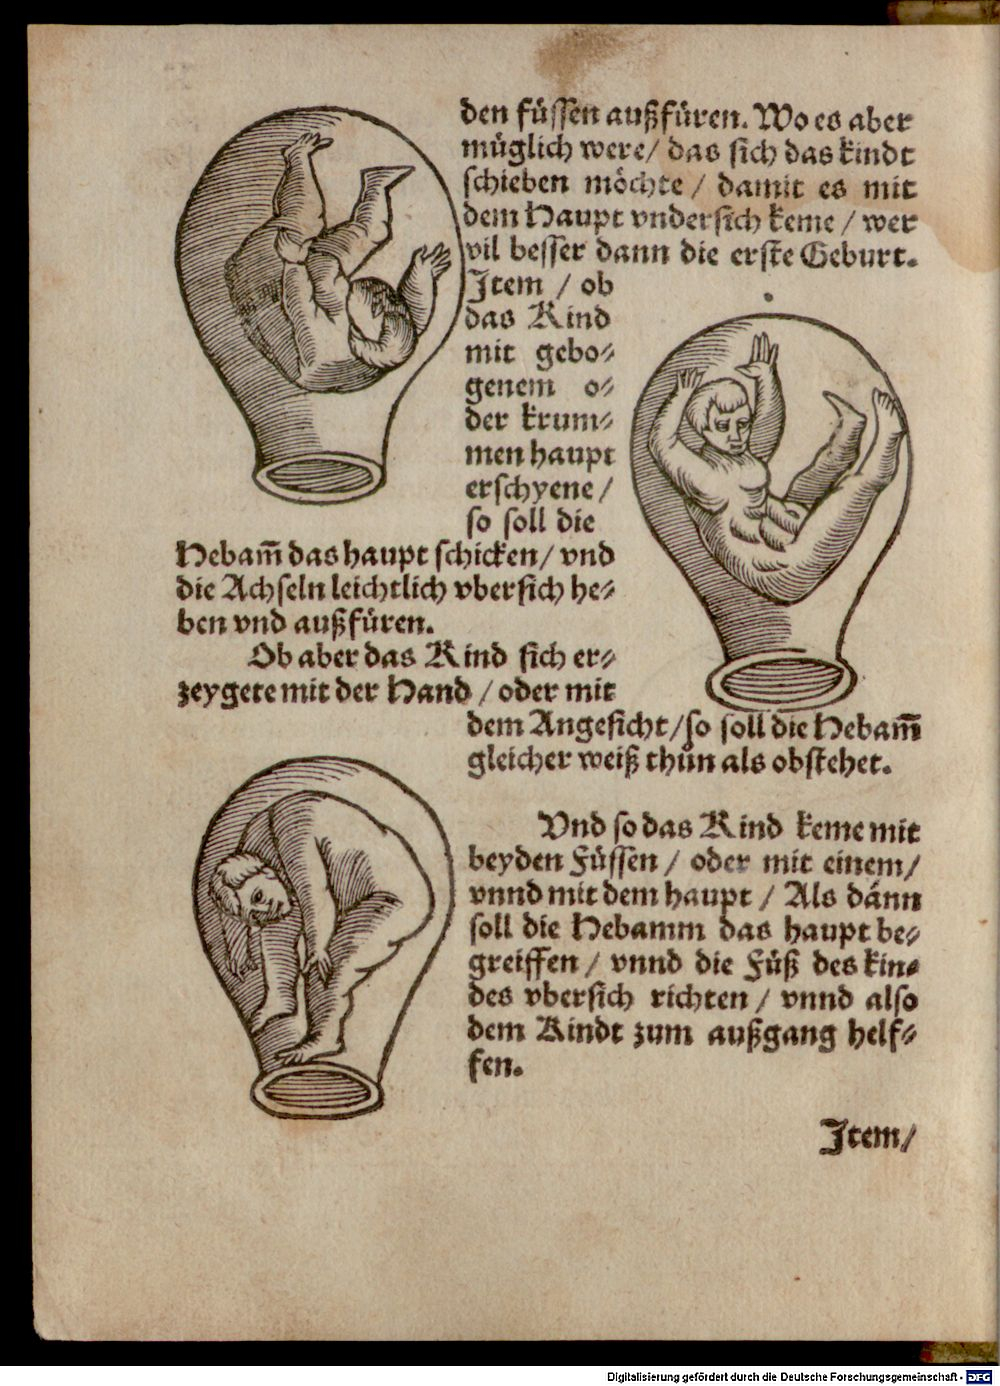 den füssen außfüren. Wo es aber
müglich were/ das sich das kindt
schieben möchte / damit es mit
dem Haupt vndersich keme / wer
vil besser dann die erste Geburt.
Item / ob
das Kind
mit gebo⸗
genem o⸗
der krum⸗
men haupt
erschyene /
so soll die
Hebam̅ das haupt schicken/ vnd
die Achseln leichtlich vbersich he⸗
ben vnd außfüren.
Ob aber das Kind sich er⸗
zeygete mit der Hand / oder mit
dem Angesicht/ so soll die Hebam̅
gleicher weiß thůn als obstehet.
Vnd so das Kind keme mit
beyden Füssen / oder mit einem/
vnnd mit dem haupt / Als dann
soll die Hebamm das haupt be⸗
greiffen / vnnd die Füß des kin⸗
des vbersich richten / vnnd also
dem Kindt zum außgang helf⸗
fen.
Item/
Digitalisierung gefördert durch die Deutsche Forschungsgemeinschaft - DFG